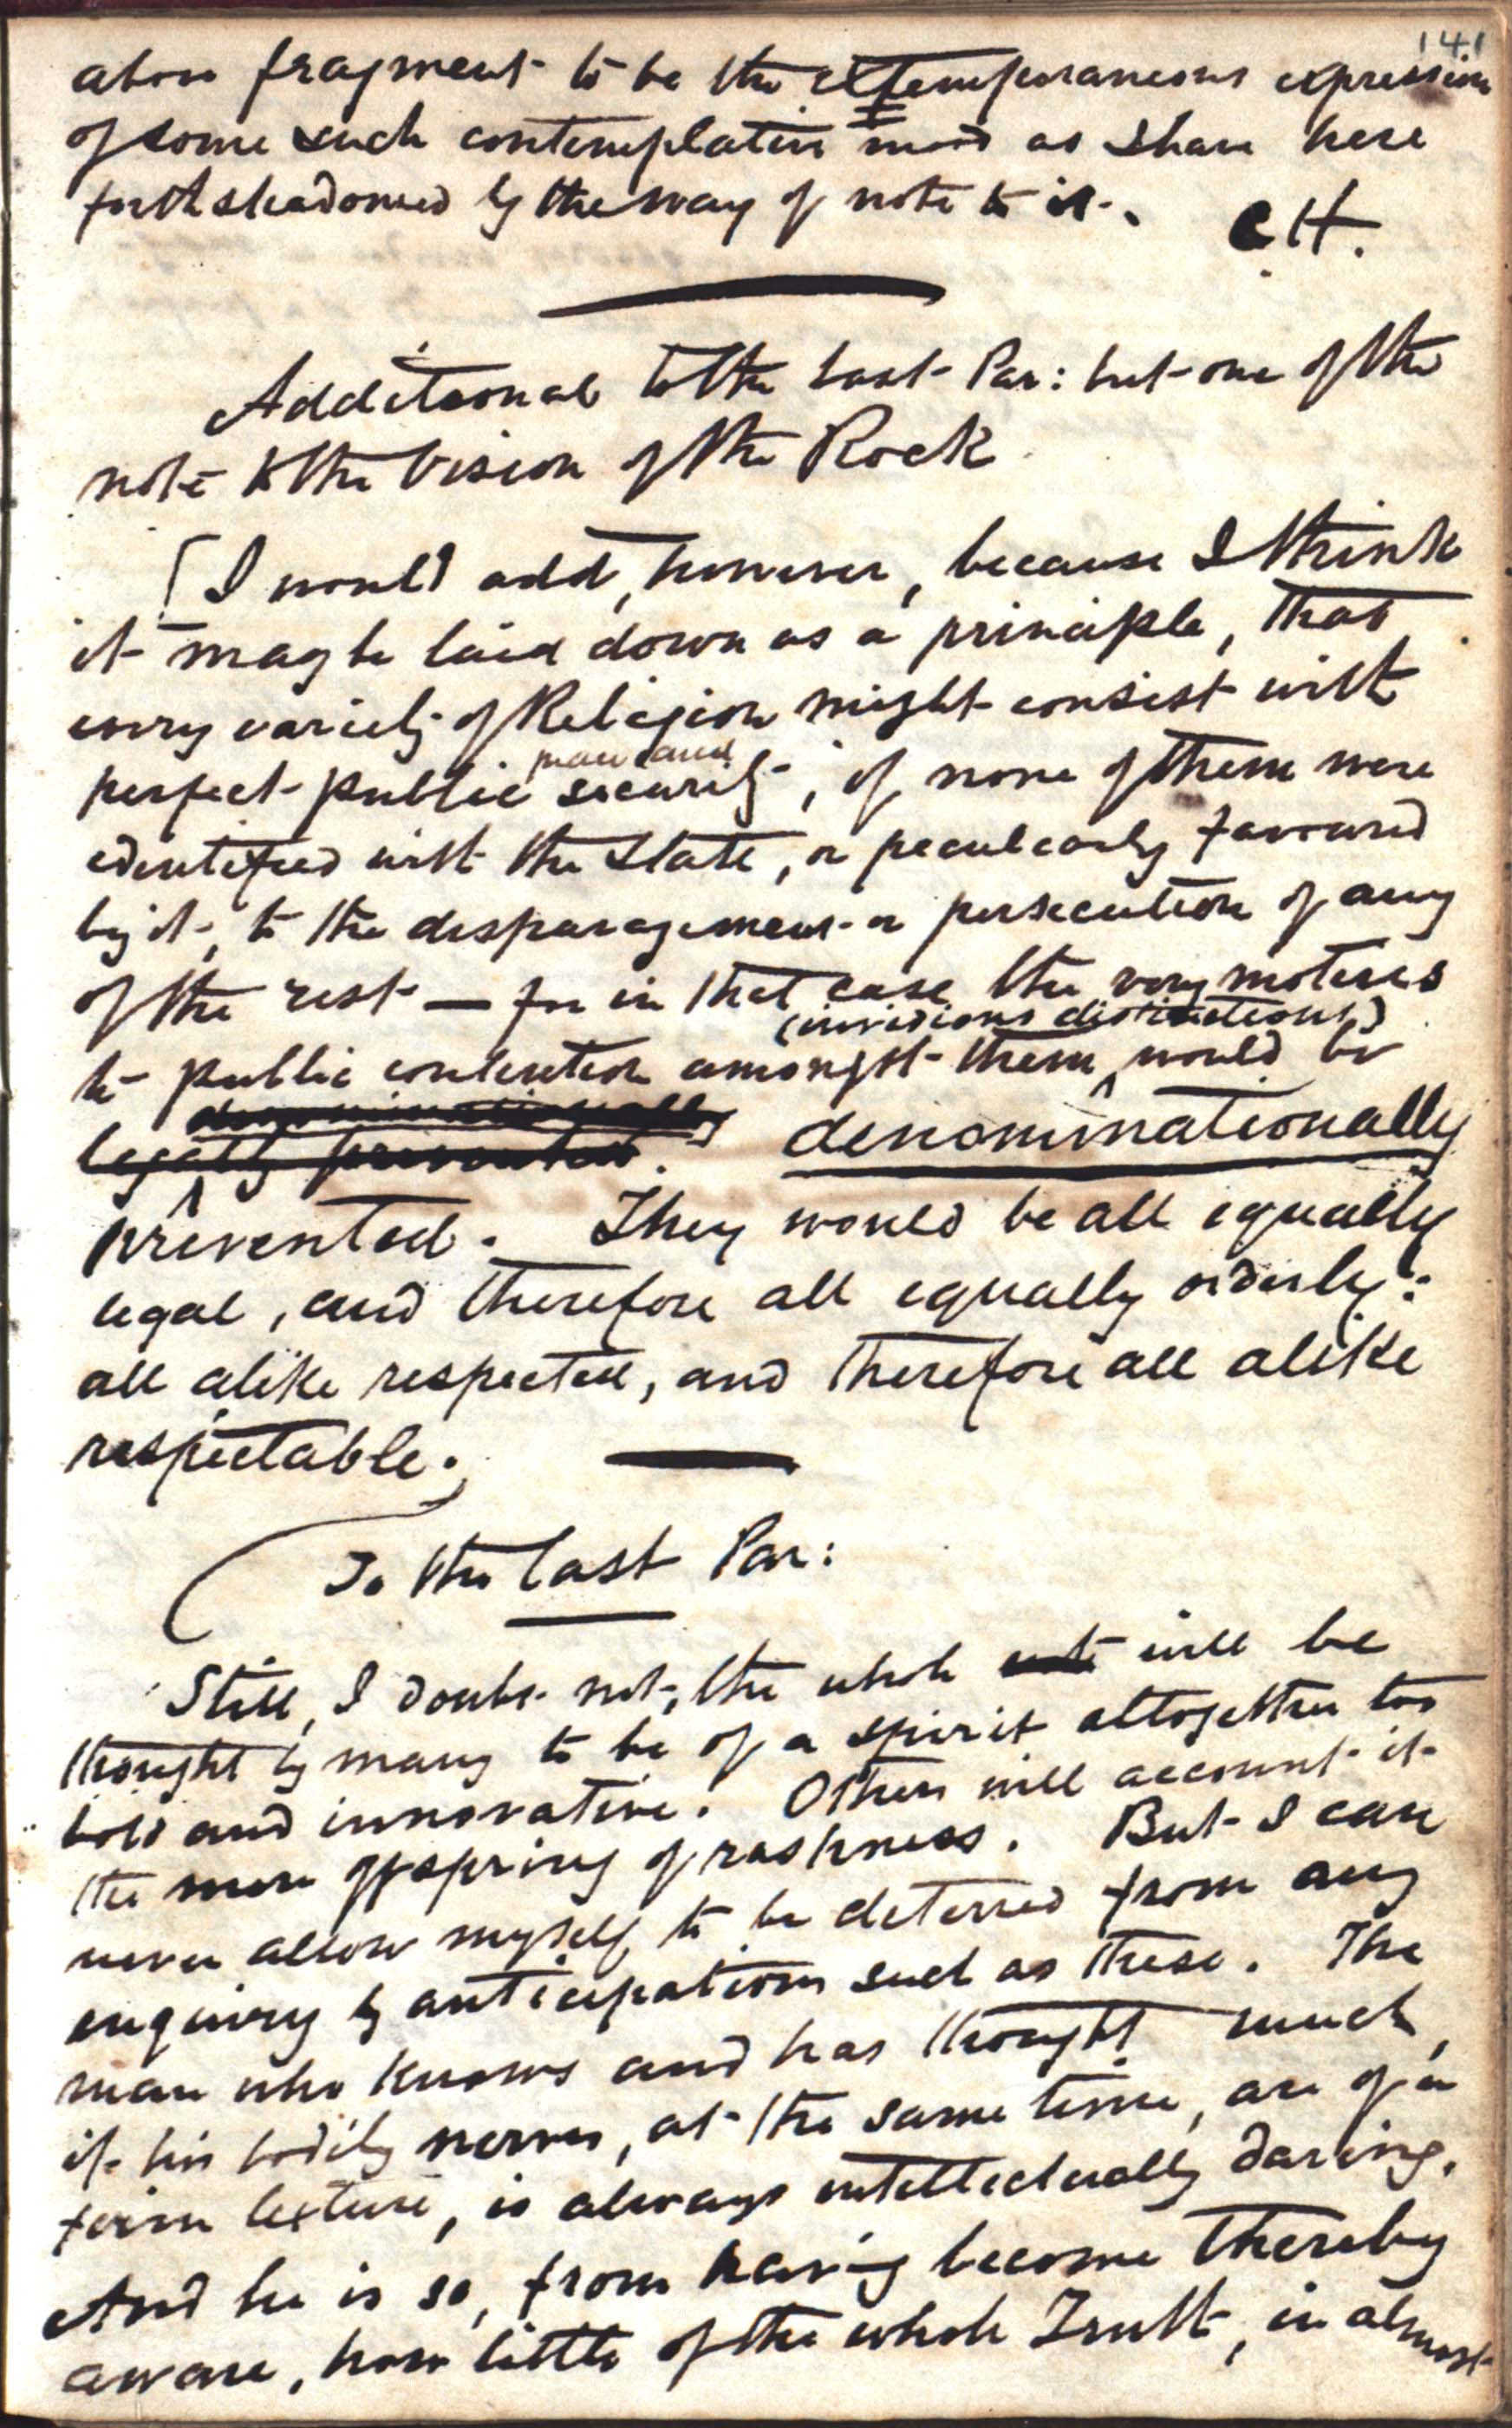 141
above fragment to be the extemporaneous expression
of some such contemplative mood as I have here
forthshadowed by the way of note to it. CH.
Additional to the last Par: but one of the
note to the Vision of the Rock
[I would add, however, because I think
it may be laid down as a principle, that
every variety of Religion might consist with
peace and
perfect public security, if none of them were
identified with the State, or peculiarly favoured
by it, to the disparagement or persecution of any
of the rest — for in that case the very motives
(invidious distinctions)
to public contention amongst them would be
denominationally
legally prevented. denominationally
prevented. They would be all equally
legal, and therefore all equally orderly:
all alike respected, and therefore all alike
respectable.
To the last Par:
Still, I doubt not, the whole will be
thought by many to be of a spirit altogether too
bold and innovative. Others will account it
the mere offspring of rashness. But I can
never allow myself to be deterred from any
enquiry by anticipations such as these. The
man who knows and has thought much,
if his bodily nerves, at the same time, are of a
firm texture, is always intellectually daring.
And he is so, from having become thereby
aware, how little of the whole Truth, in almost